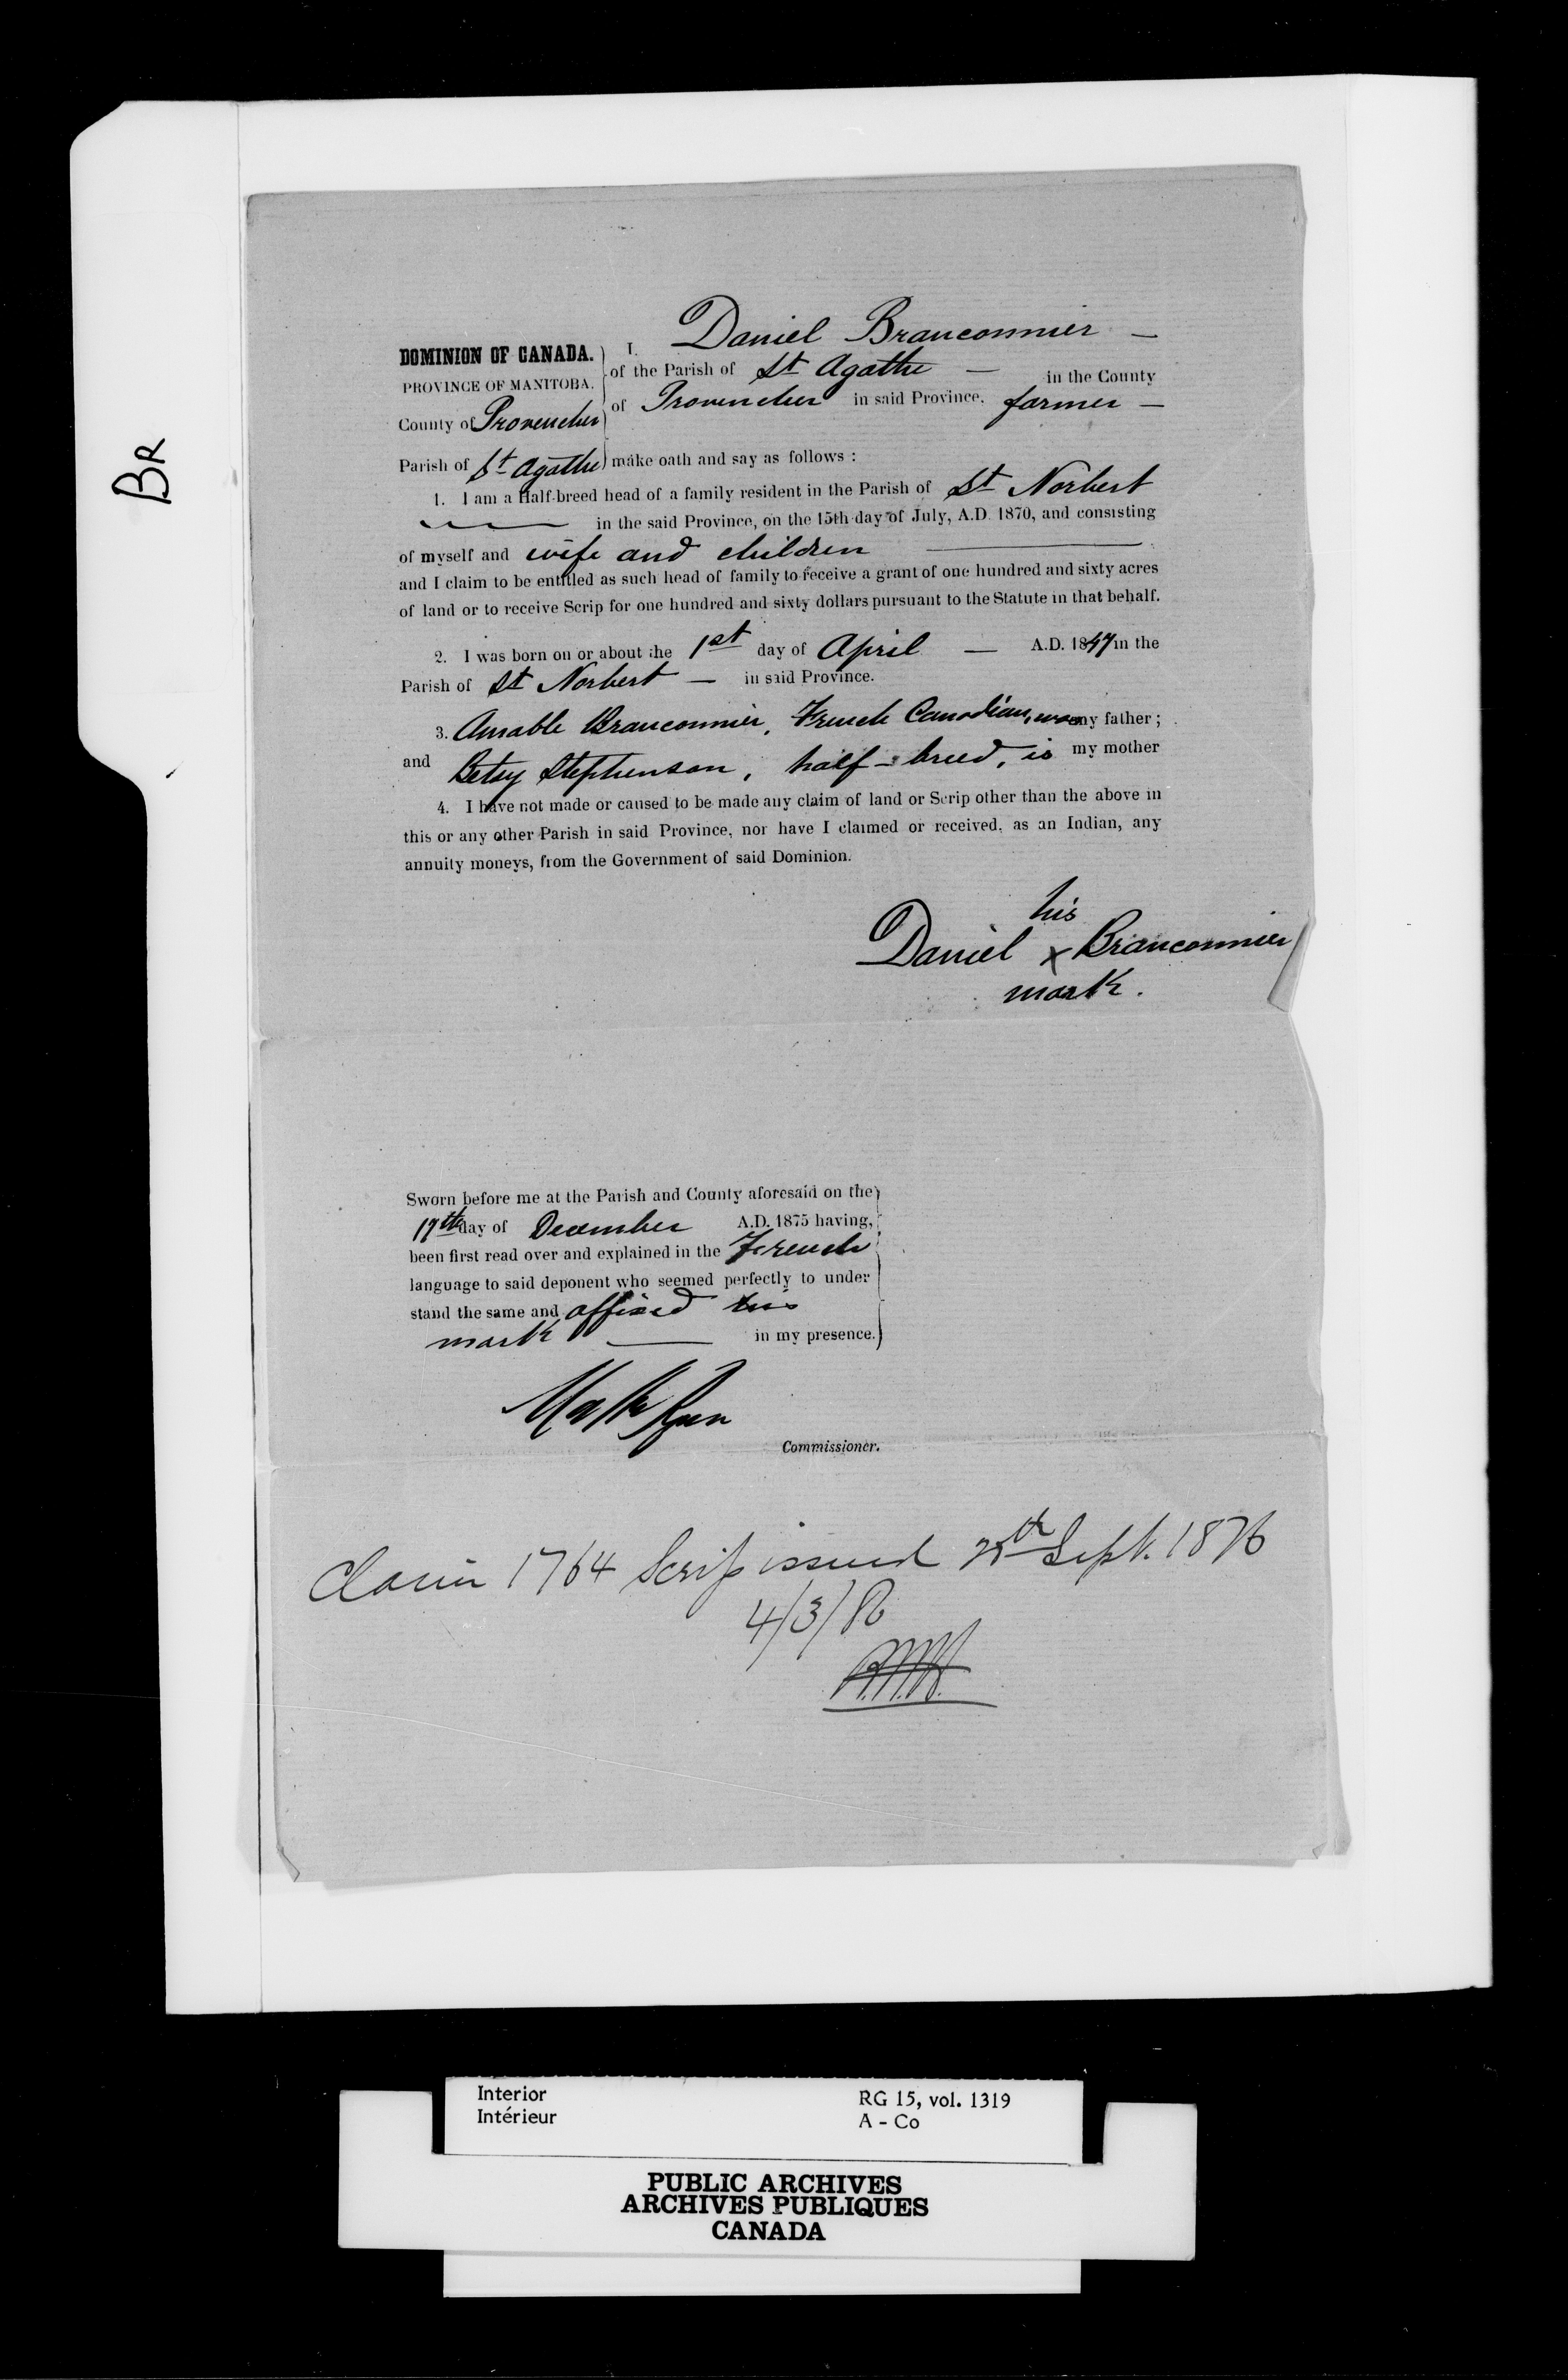 BR
Daniel Branconnier —
DOMINION OF CANADA. I,
of the Parish of St Agathe — in the County
PROVINCE OF MANITOBA.
of Provencher in said Province, farmer —
County of Provencher
Parish of St Agathe make oath and say as follows :
1. I am a Half-breed head of a family resident in the Parish of St Norbert
— in the said Province, on the 15th day of July, A.D. 1870, and consisting
of myself and wife and children —
and I claim to be entitled as such head of family to receive a grant of one hundred and sixty acres
of land or to receive Scrip for one hundred and sixty dollars pursuant to the Statute in that behalf.
2. I was born on or about the 1st day of April — A.D. 1847 in the
Parish of St Norbert — in said Province.
3. Amable Branconnier, French Canadian, was my father ;
and Betsy Stephenson, half-breed, is my mother
4. I have not made or caused to be made any claim of land or Scrip other than the above in
this or any other Parish in said Province, nor have I claimed or received, as an Indian, any
annuity moneys, from the Government of said Dominion.
his
Daniel x Branconnier
mark.
Sworn before me at the Parish and County aforesaid on the
17th day of December A.D. 1875 having,
been first read over and explained in the French
language to said deponent who seemed perfectly to under
stand the same and affixed his
mark — in my presence.
Commissioner.
Claim 1764 Scrip issued Sept. 1876
4/3/
Interior RG 15, vol. 1319
Intérieur A - Co
PUBLIC ARCHIVES
ARCHIVES PUBLIQUES
CANADA